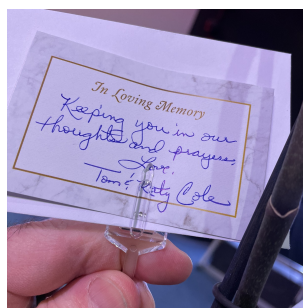 In Loving Memory
Keeping you in our
thoughts and prayers.
Love,
Tom & Katy Cole